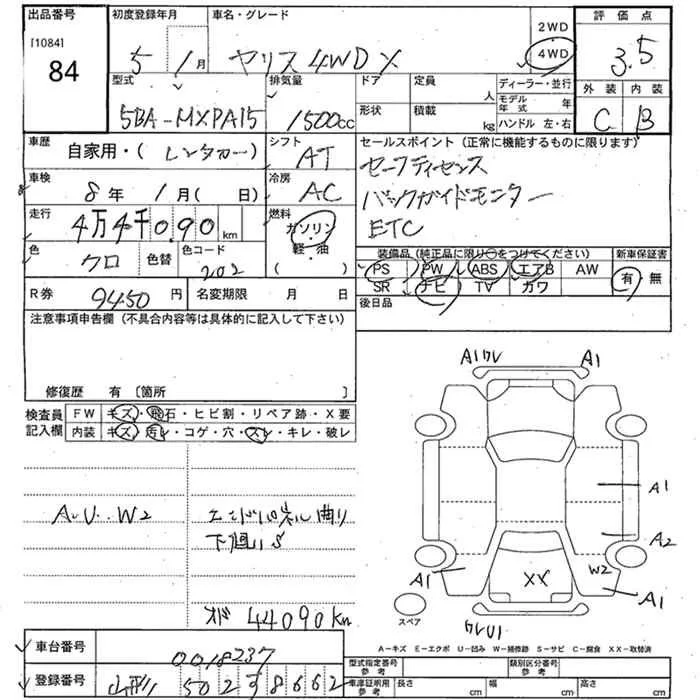 出品番号 初度登録年月 車名・グレード 2WD 4WD 評価点
[1084]
84
5 1月 ヤリス 4WD X 3.5
型式 排気量 ドア 定員 人 ディーラー・並行 外装 内装
モデル年式 年
5BA-MXPA15 1500cc 形状 積載 kg ハンドル 左・右 C B
車歴 自家用・(レンタカー) シフト AT セールスポイント (正常に機能するものに限ります)
車検 8年 1月(日) 冷房 AC セーフティセンス
バックガイドモニター
走行 4万4千090km 燃料 ガソリン・軽・油 ETC
色 クロ 色替 色コード 202 ( )
装備品 (純正品に限り○をつけてください) 新車保証書
PS PW ABS エアB AW 有・無
SR ナビ TV カワ
R券 9450円 名変期限 月 日 後日品
注意事項申告欄 (不具合内容等は具体的に記入して下さい)
修復歴 有 〔箇所 〕
検査員記入欄 FW キズ・飛石・ヒビ割・リペア跡・X要
内装 キズ・汚レ・コゲ・穴・スレ・キレ・破レ
A.U..W2
下廻りS
オド 44090km
A1ワレ A1
A1
A2
W2
A1 XX A1
ワレU1
スペア
A-キズ E-エクボ U-凹み W-補修跡 S-サビ C-腐食 XX-取替済
車台番号 0018237
登録番号 山形 502 す 8662
型式指定番号 参考 類別区分番号 参考
車庫証明用 参考 長さ cm 幅 cm 高さ cm